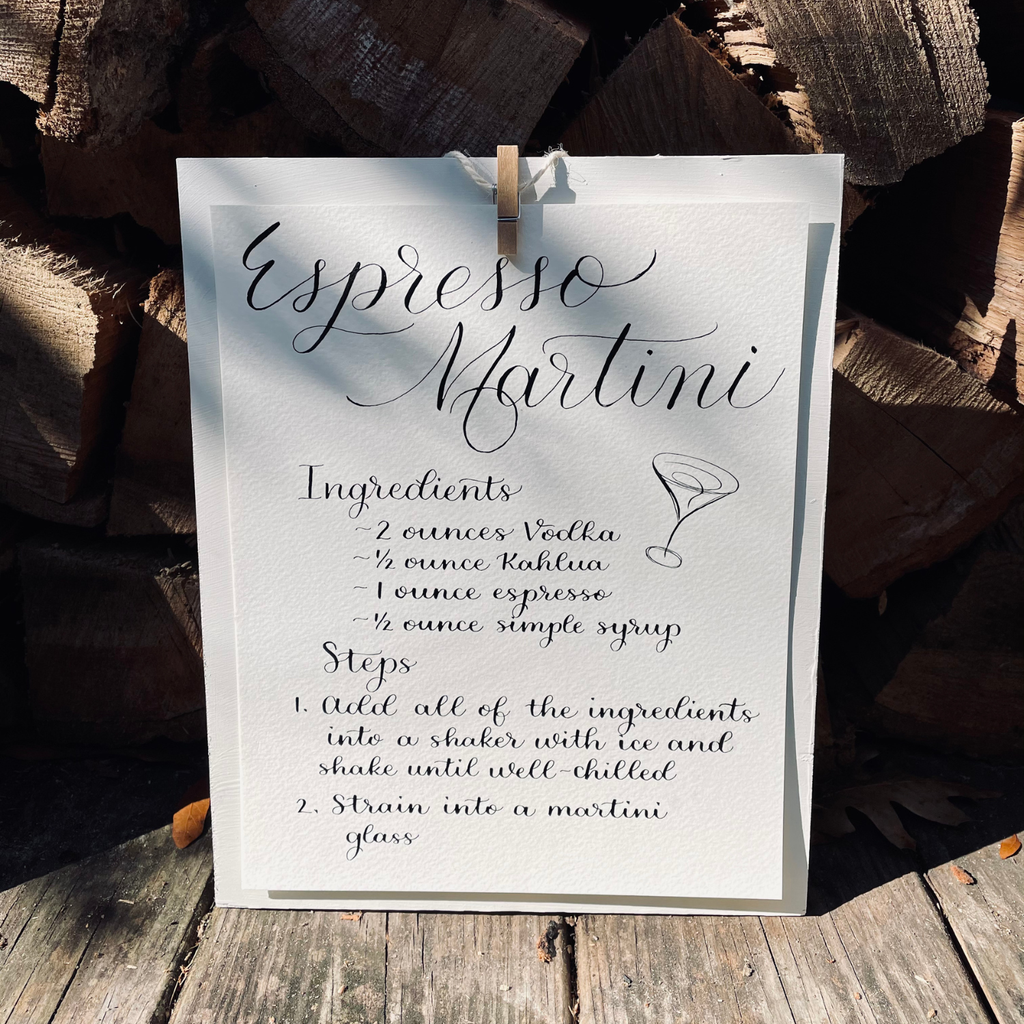 Espresso
Martini
Ingredients
~2 ounces Vodka
~½ ounce Kahlua
~1 ounce espresso
~½ ounce simple syrup
Steps
1. Add all of the ingredients
into a shaker with ice and
shake until well-chilled
2. Strain into a martini
glass